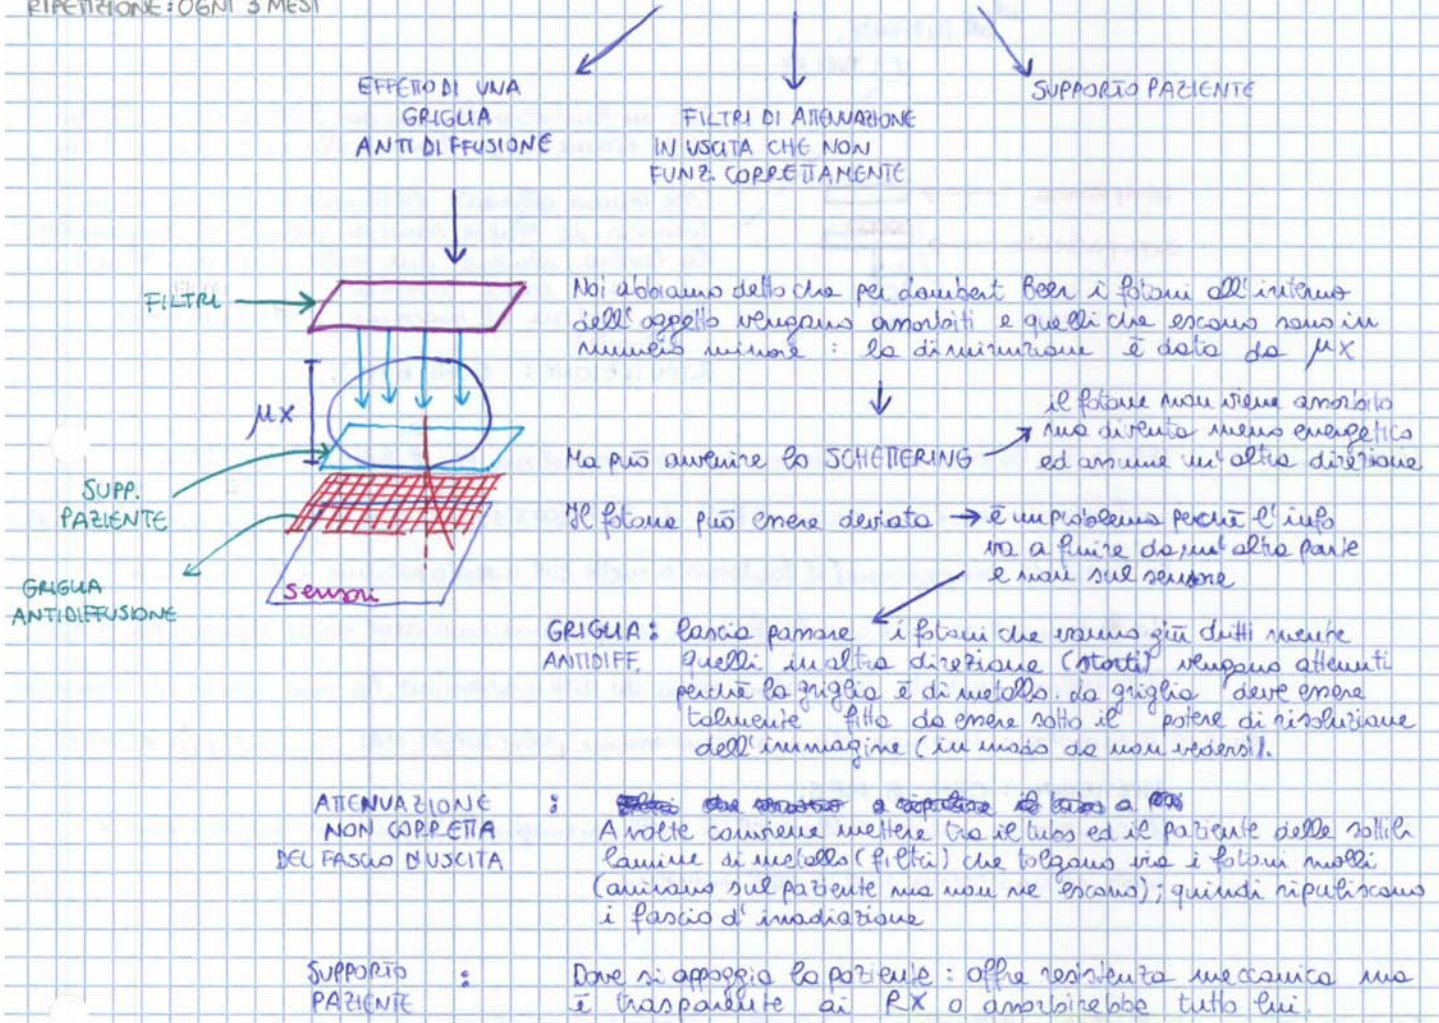 RIPETIZIONE: OGNI 3 MESI
EFFETTO DI UNA
GRIGLIA
ANTIDIFFUSIONE
FILTRI DI ATTENUAZIONE
IN USCITA CHE NON
FUNZ. CORRETTAMENTE
SUPPORTO PAZIENTE
FILTRI
μx
SUPP.
PAZIENTE
GRIGLIA
ANTIDIFFUSIONE
sensori
Noi abbiamo detto che per Lambert Beer i fotoni all'interno
dell'oggetto vengono assorbiti e quelli che escono sono in
numero minore : la diminuzione è data da μx
Ma può avvenire lo SCHETTERING
il fotone non viene assorbito
ma diventa meno energetico
ed assume un'altra direzione
Il fotone può essere deviato → è un problema perché l'info
va a finire da un'altra parte
e non sul sensore
GRIGLIA : lascia passare i fotoni che vanno giù dritti mentre
ANTIDIFF. quelli in altra direzione (storti) vengono attenuati
perché la griglia è di metallo. La griglia deve essere
talmente fitta da essere sotto il potere di risoluzione
dell'immagine (in modo da non vedersi).
ATTENUAZIONE :
NON CORRETTA A volte conviene mettere tra il tubo ed il paziente delle sottili
DEL FASCIO D'USCITA lamine di metallo (filtri) che tolgono via i fotoni molli
(arrivano sul paziente ma non ne escono); quindi ripuliscono
i fascio d'irradiazione
SUPPORTO : Dove si appoggia la paziente : offre resistenza meccanica ma
PAZIENTE è trasparente ai RX o assorbirebbe tutto lui.